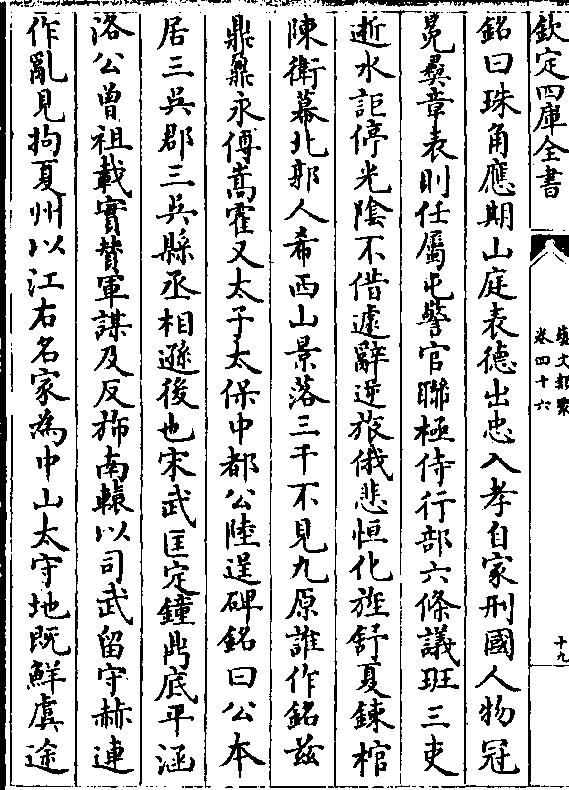 欽定四庫全書
藝文類聚
卷四十六
十九
銘曰珠角應期山庭表德出忠入孝自家刑國人物冠
冕彝章表則任屬屯警官聯極侍行部六條議班三吏
逝水詎停光陰不借遽辭逆旅俄悲恒化旌舒夏錬棺
陳衛幕北郭人希西山景落三千不見九原誰作銘兹
鼎鼐永傳嵩霍又太子太保中都公陸逞碑銘曰公本
居三吳郡三吳縣丞相遜後也宋武匡定鐘鼎底平函
洛公曾祖載實贊軍謀及反斾南轅以司武留守赫連
作亂見拘夏州以江右名家為中山太守地既鮮虞途